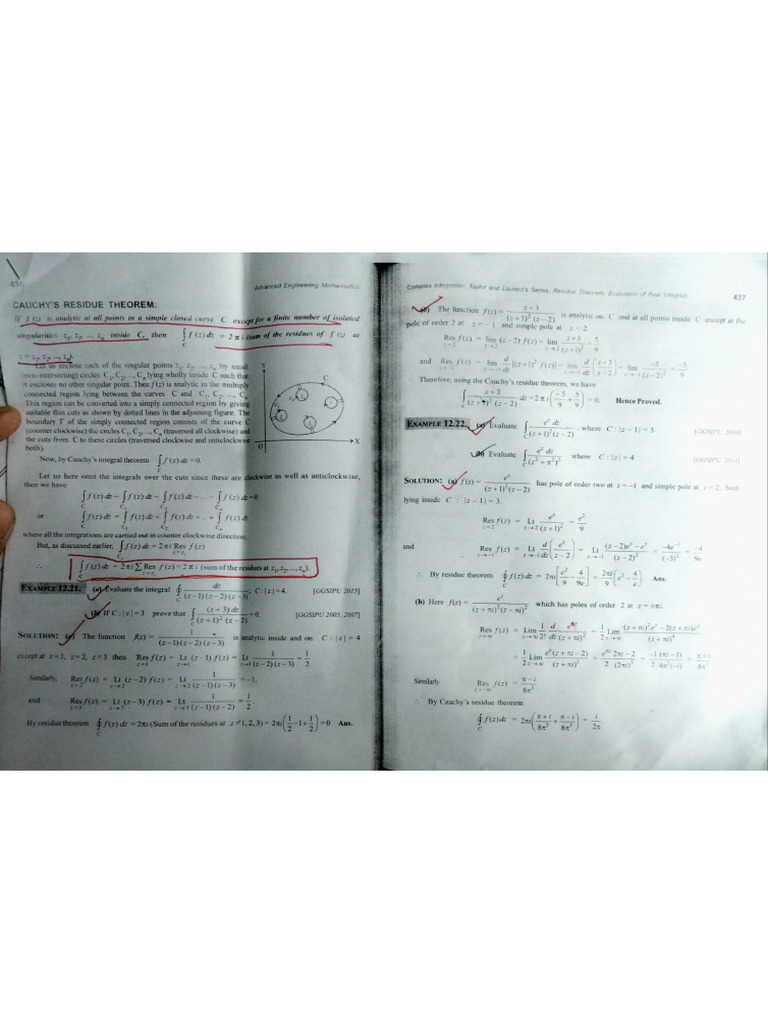 436
Advanced Engineering Mathematics
CAUCHY'S RESIDUE THEOREM:
If f(z) is analytic at all points in a simple closed curve C except for a finite number of isolated
singularities z₁, z₂, ..., zₙ inside C, then ∫_C f(z) dz = 2πi (sum of the residues of f(z) at
z = z₁, z₂, ..., zₙ).
Let us enclose each of the singular points z₁, z₂, ..., zₙ by small
(non-intersecting) circles C₁, C₂, ..., Cₙ lying wholly inside C such that
it encloses no other singular point. Then f(z) is analytic in the multiply
connected region lying between the curves C and C₁, C₂, ..., Cₙ
This region can be converted into a simply connected region by giving
suitable thin cuts as shown by dotted lines in the adjoining figure. The
boundary Γ of the simply connected region consists of the curve C
(counter clockwise) the circles C₁, C₂, ..., Cₙ (traversed all clockwise) and
the cuts from C to these circles (traversed clockwise and anticlockwise
both).
Y
C
O
X
Now, by Cauchy's integral theorem ∫_Γ f(z) dz = 0.
Let us here omit the integrals over the cuts since these are clockwise as well as anticlockwise,
then we have
∫_C f(z) dz − ∫_C₁ f(z) dz − ∫_C₂ f(z) dz − ... − ∫_Cₙ f(z) dz = 0
or ∫_C f(z) dz = ∫_C₁ f(z) dz + ∫_C₂ f(z) dz + ... + ∫_Cₙ f(z) dz
where all the integrations are carried out in counter clockwise direction.
But, as discussed earlier, ∫ f(z) dz = 2πi Res f(z)
∴ ∫_C f(z) dz = 2πi ∑ Res f(z) = 2πi (sum of the residues at z₁, z₂, ..., zₙ).
EXAMPLE 12.21. (a) Evaluate the integral ∮_C dz/((z−1)(z−2)(z−3)); C:|z|=4. [GGSIPU 2015]
(b) If C:|z|=3 prove that ∫_C (z+3)dz/((z+1)²(z−2)) = 0. [GGSIPU 2005, 2007]
SOLUTION: (a) The function f(z) = 1/((z−1)(z−2)(z−3)) is analytic inside and on C:|z|=4
except at z=1, z=2, z=3 then Res_{z=1} f(z) = Lt_{z→1} (z−1) f(z) = Lt_{z→1} 1/((z−2)(z−3)) = 1/2
Similarly, Res_{z=2} f(z) = Lt_{z→2} (z−2) f(z) = Lt_{z→2} 1/((z−1)(z−3)) = −1,
and Res_{z=3} f(z) = Lt_{z→3} (z−3) f(z) = Lt_{z→3} 1/((z−1)(z−2)) = 1/2
By residue theorem ∮_C f(z) dz = 2πi (Sum of the residues at z=1, 2, 3) = 2πi(1/2 − 1 + 1/2) = 0 Ans.
Complex Integration: Taylor and Laurent's Series, Residue Theorem, Evaluation of Real Integrals
437
(b) The function f(z) = (z+3)/((z+1)²(z−2)) is analytic on C and at all points inside C except at the
pole of order 2 at z = −1 and simple pole at z = 2
Res_{z=2} f(z) = lim_{z→2} (z−2) f(z) = lim_{z→2} (z+3)/(z+1)² = 5/9
and Res_{z=−1} f(z) = lim_{z→−1} d/dz[(z+1)² f(z)] = lim_{z→−1} d/dz((z+3)/(z−2)) = lim_{z→−1} −5/(z−2)² = −5/9
Therefore, using the Cauchy's residue theorem, we have
∫_C (z+3)/((z+1)²(z−2)) dz = 2πi(−5/9 + 5/9) = 0. Hence Proved.
EXAMPLE 12.22. (a) Evaluate ∫_C eᶻ dz/((z+1)²(z−2)), where C : |z−1| = 3
(b) Evaluate ∫_C eᶻ dz/(z²+π²)² where C : |z| = 4 [GGSIPU 2014]
SOLUTION: (a) f(z) = eᶻ/((z+1)²(z−2)) has pole of order two at z=−1 and simple pole at z=2, both
lying inside C : |z−1| = 3.
Res_{z=2} f(z) = Lt_{z→2} eᶻ/(z+1)² = e²/9
and Res_{z=−1} f(z) = Lt_{z→−1} d/dz[eᶻ/(z−2)] = Lt_{z→−1} ((z−2)eᶻ−eᶻ)/(z−2)² = −4e⁻¹/(−3)² = −4/9e
∴ By residue theorem ∮_C f(z) dz = 2πi[e²/9 − 4/9e] = 2πi/9 (e² − 4/e) Ans.
(b) Here f(z) = eᶻ/((z+πi)²(z−πi)²) which has poles of order 2 at z=±πi.
Res f(z) = Lim 1/2! d/dz eᶻ/(z+πi)² = 1/2 Lim ((z+πi)²eᶻ−2(z+πi)eᶻ)/(z+πi)⁴
= 1/2 Lim eᶻ(z+πi−2)/(z+πi)³ = e^{πi}/2 (2πi−2)/(2πi)³ = −1(πi−1)/(2 4π³(−i)) = π+i
Similarly Res f(z) = (π−i)/8π³
∴ By Cauchy's residue theorem
∮_C f(z) dz = 2πi((π+i)/8π³ + (π−i)/8π³) = i/2π